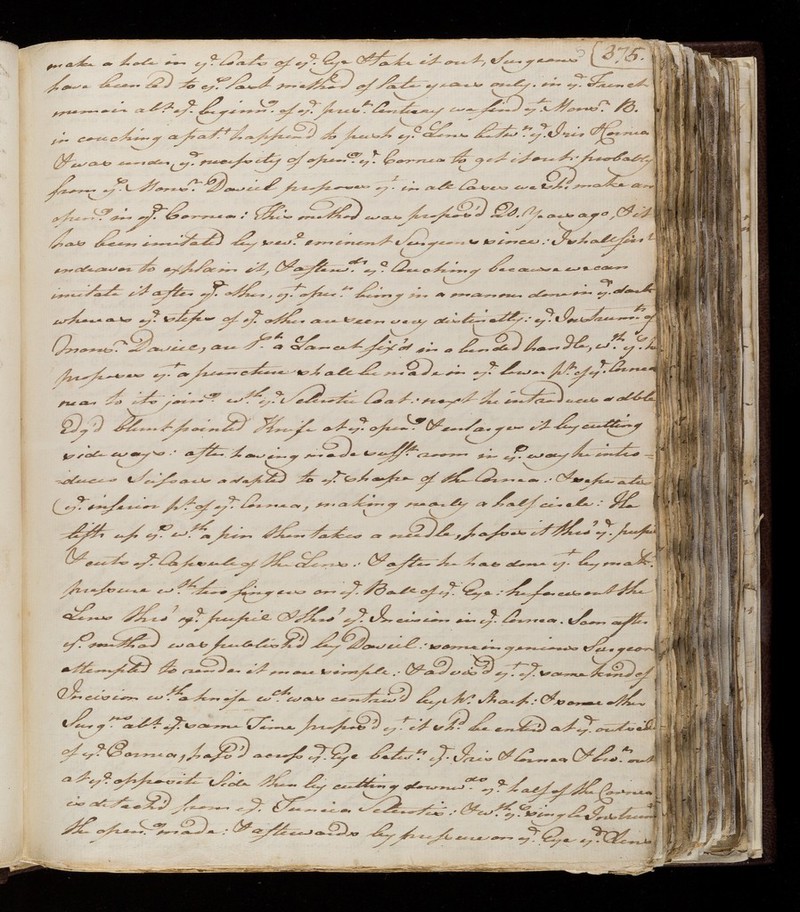 (375.
make a hole in y.e Coats of y.e Eye & take it out, Surgeons
have been led to y.s last method of late years only. in y.e French
memoirs ab.t y.e beginn.g of y.e pres.t Century we find y.t Mons.r B.
in couching a pat.t happend to push y.e Lens betw.n y.e Iris & Cornea
& was under y.e necessity of open.g y.e Cornea to get it out: probably
from y.s Mons.r Daviel proposes y.t in all Cases we sh.d make an
open.g in y.e Cornea: This method was propos'd 20. Years ago, & it
has been imitated by sev.l eminent Surgeons since: I shall first
endeavor to explain it, & afterw.ds y.e Couching because we can
imitate it after y.e other, y.t oper.n being in a manner done in y.e dark
whereas y.e steps of y.e other are seen very distinctly: y.e Instrum.ts of
Mons.r Daviel, are 1.st a Lancet fix'd in a bended handle, w.th y.s he
proposes y.t a puncture shall be made in y.e lower p.t of y.e Cornea
near to its join.g w.th y.e Sclerotic Coat: next he introduces a dble
Edg'd blunt pointed Knife at y.e open.g & enlarges it by cutting
side ways: after having made suff.t room in y.s way he intro-
-duces Scissars adapted to y.e shape of the Cornea: & seperates
y.e inferior p.t of y.e Cornea, making nearly a half circle: He
lifts up y.s w.th a pin then takes a needle, passes it thro' y.e pupil
& cuts y.e Capsule of the Lens: & after he has done y.t by mak.g
pressure w.th two fingers on y.e Ball of y.e Eye: he forces out the
Lens thro' y.e pupil & thro' y.e Incision in y.e Cornea. Soon after
y.s method was publish'd by Daviel: some ingenious Surgeons
attempted to render it more simple: & advis'd y.t y.e same kind of
Incision w.th a knife w.ch was contriv'd by M.r Sharp: & some other
Surg.ns ab.t y.e same Time propos'd y.t it sh.d be enter'd at y.e outside
of y.e Cornea, pass'd across y.e Eye betw.n y.e Iris & Cornea & bro.t out
at y.e opposite Side then by cutting downw.ds y.e half of the Cornea
is detach'd from y.e Tunica Sclerotis: & w.th y.s single Instrum
the open.g made: & afterwards by pressure on y.e Eye y.e Lens